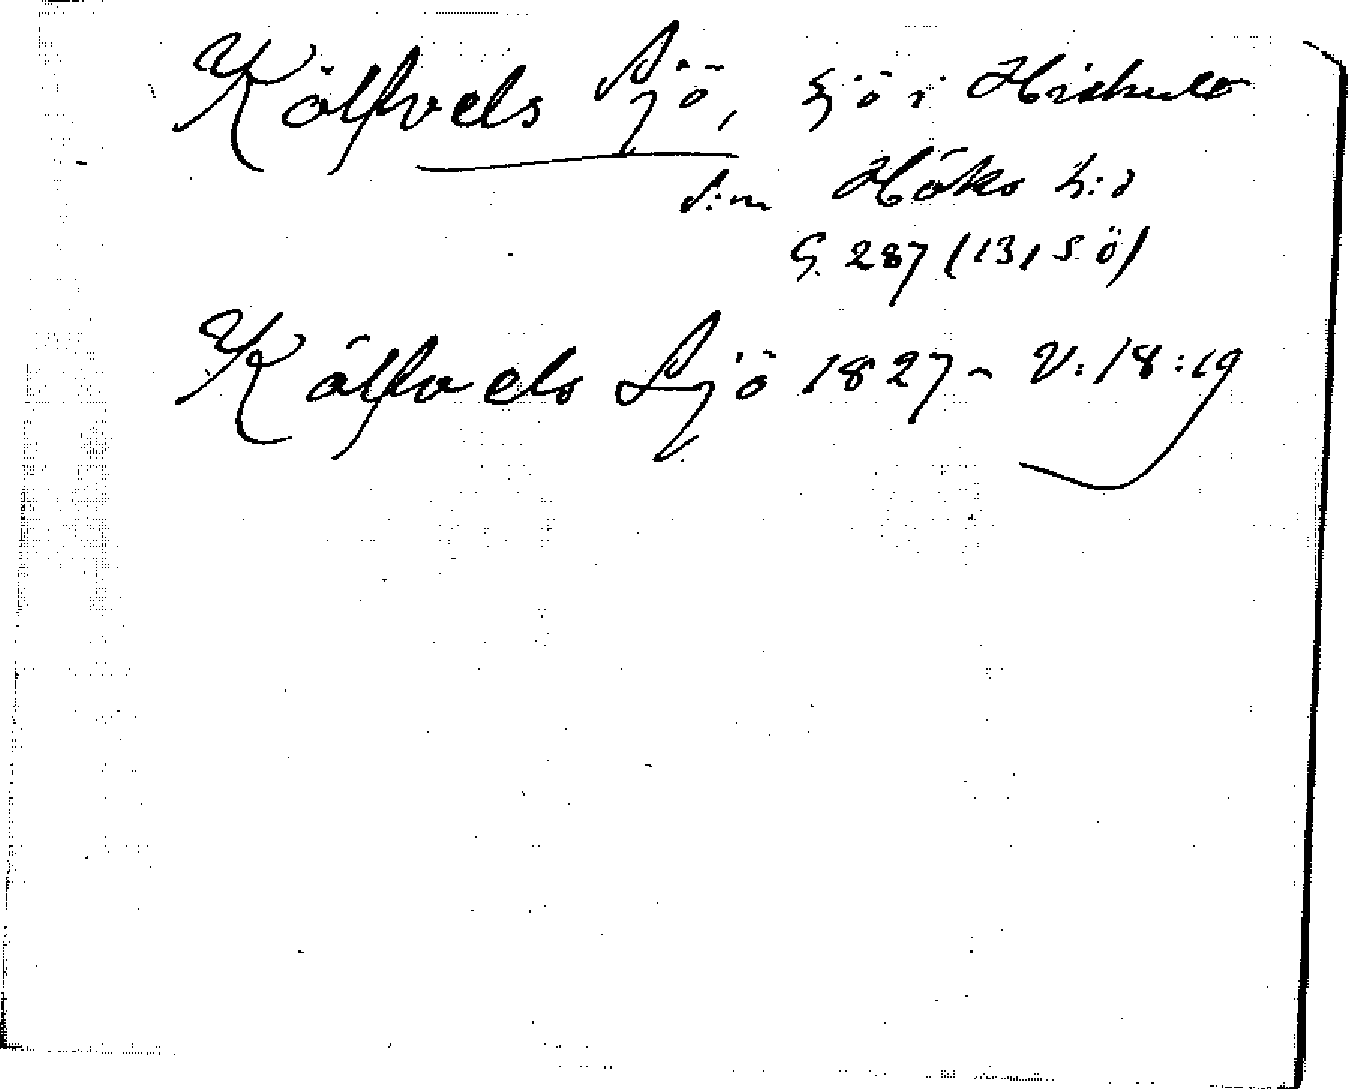 Kölfvels Sjö, sjö i Hishult
s:n Höks h:d
G. 287 (13, S. ö)
Kölfvels Sjö 1827 - V:18:19